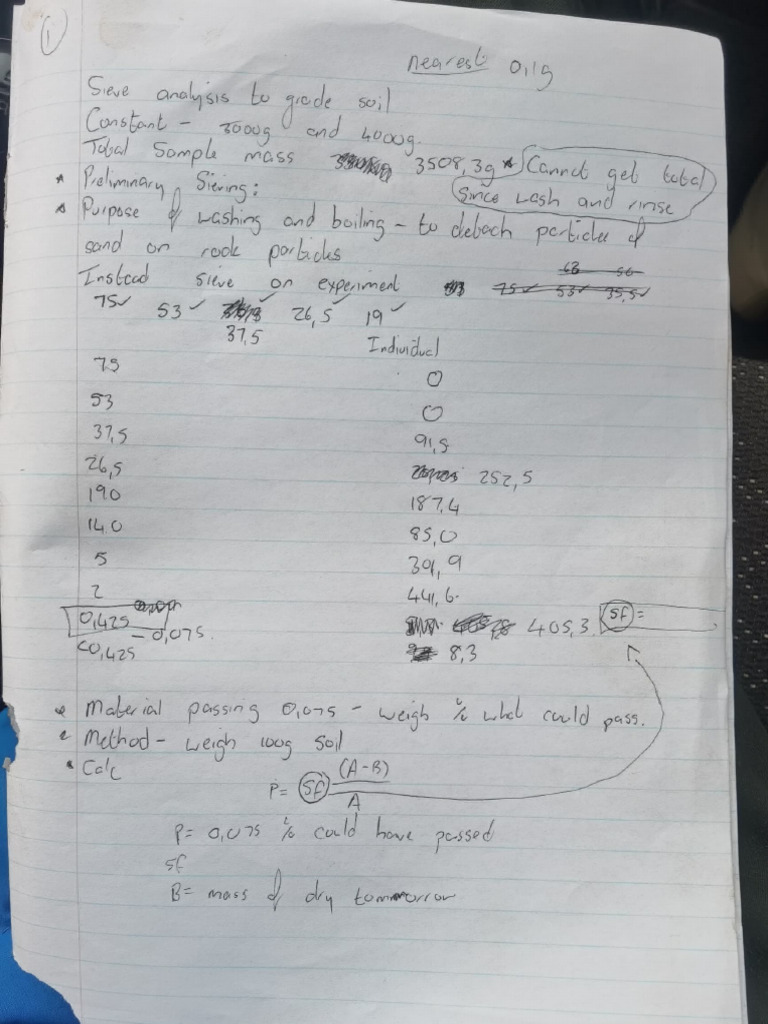 1
nearest 0,1g
Sieve analysis to grade soil
Constant - 3000g and 4000g.
Total Sample mass 3508,3g * Cannot get total
since wash and rinse
* Preliminary Sieving:
* Purpose of washing and boiling - to detach particles of
sand on rock particles
63 56
Instead sieve on experiment 75 53 35,5
75 ✓ 53 ✓ 26,5 ✓ 19 ✓
37,5
Individual
75 0
53 0
37,5 91,5
26,5 252,5
190 187,4
14,0 85,0
5 391,9
2 441,6
0,425 405,3 Sf =
<0,425 - 0,075. 8,3
* Material passing 0,075 - weigh % what could pass.
* Method - weigh 100g soil
* Calc
P = Sf (A-B)
A
P = 0,075 % could have passed
sf
B = mass of dry tommorrow